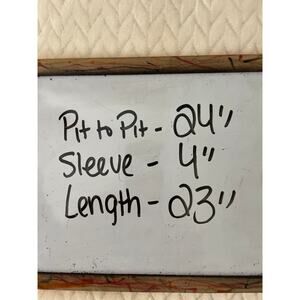 Pit to Pit - 24"
Sleeve - 4"
Length - 23"